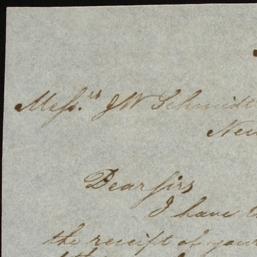 Messrs JW Schmidt
New
Dear sirs
I have
the receipt of your